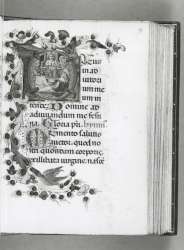 Deus
in ad
iutori
um me
um in
tende. Domine ad
adiuuandum me festi
na. Gloria hymnus
Memento salutis
auctor. quod no
stri quondam corporis
ex illibata uirgine. nasce